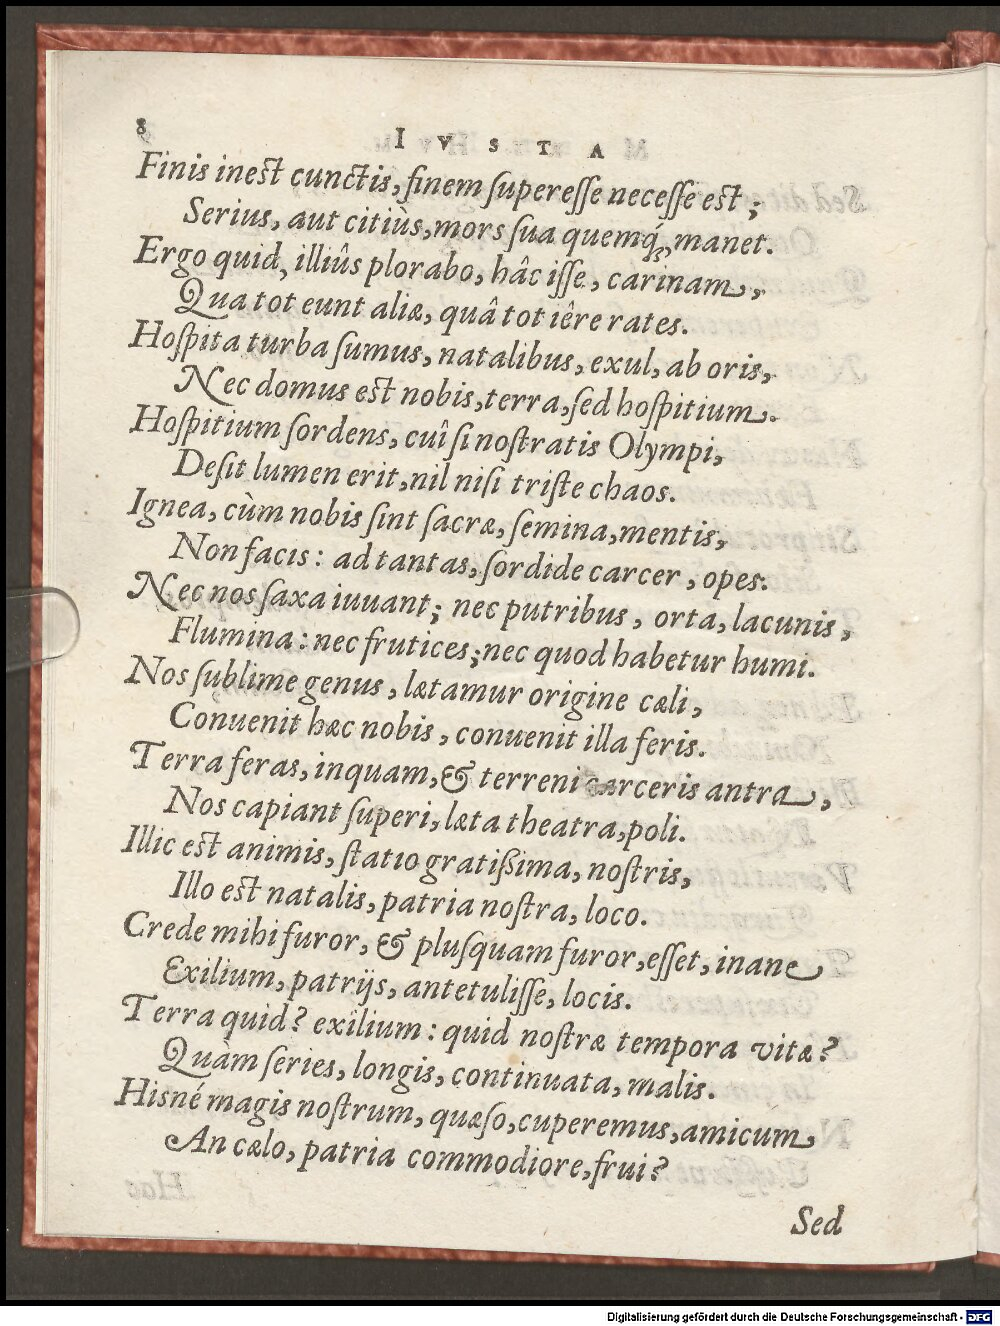 8
I V S T A
Finis inest cunctis, finem superesse necesse est;
Serius, aut citiùs, mors sua quemq́, manet.
Ergo quid, illiûs plorabo, hâc isse, carinam,
Qua tot eunt aliæ, quâ tot iêre rates.
Hospita turba sumus, natalibus, exul, ab oris,
Nec domus est nobis, terra, sed hospitium.
Hospitium sordens, cuî si nostratis Olympi,
Desit lumen erit, nil nisi triste chaos.
Ignea, cùm nobis sint sacræ, semina, mentis,
Non facis: ad tantas, sordide carcer, opes.
Nec nos saxa iuuant; nec putribus, orta, lacunis,
Flumina: nec frutices; nec quod habetur humi.
Nos sublime genus, lætamur origine cæli,
Conuenit hæc nobis, conuenit illa feris.
Terra feras, inquam, & terreni carceris antra,
Nos capiant superi, læta theatra, poli.
Illic est animis, statio gratißima, nostris,
Illo est natalis, patria nostra, loco.
Crede mihi furor, & plusquam furor, esset, inane
Exilium, patrijs, antetulisse, locis.
Terra quid? exilium: quid nostræ tempora vitæ?
Quàm series, longis, continuata, malis.
Hisné magis nostrum, quæso, cuperemus, amicum,
An cælo, patria commodiore, frui?
Sed
Digitalisierung gefördert durch die Deutsche Forschungsgemeinschaft - DFG